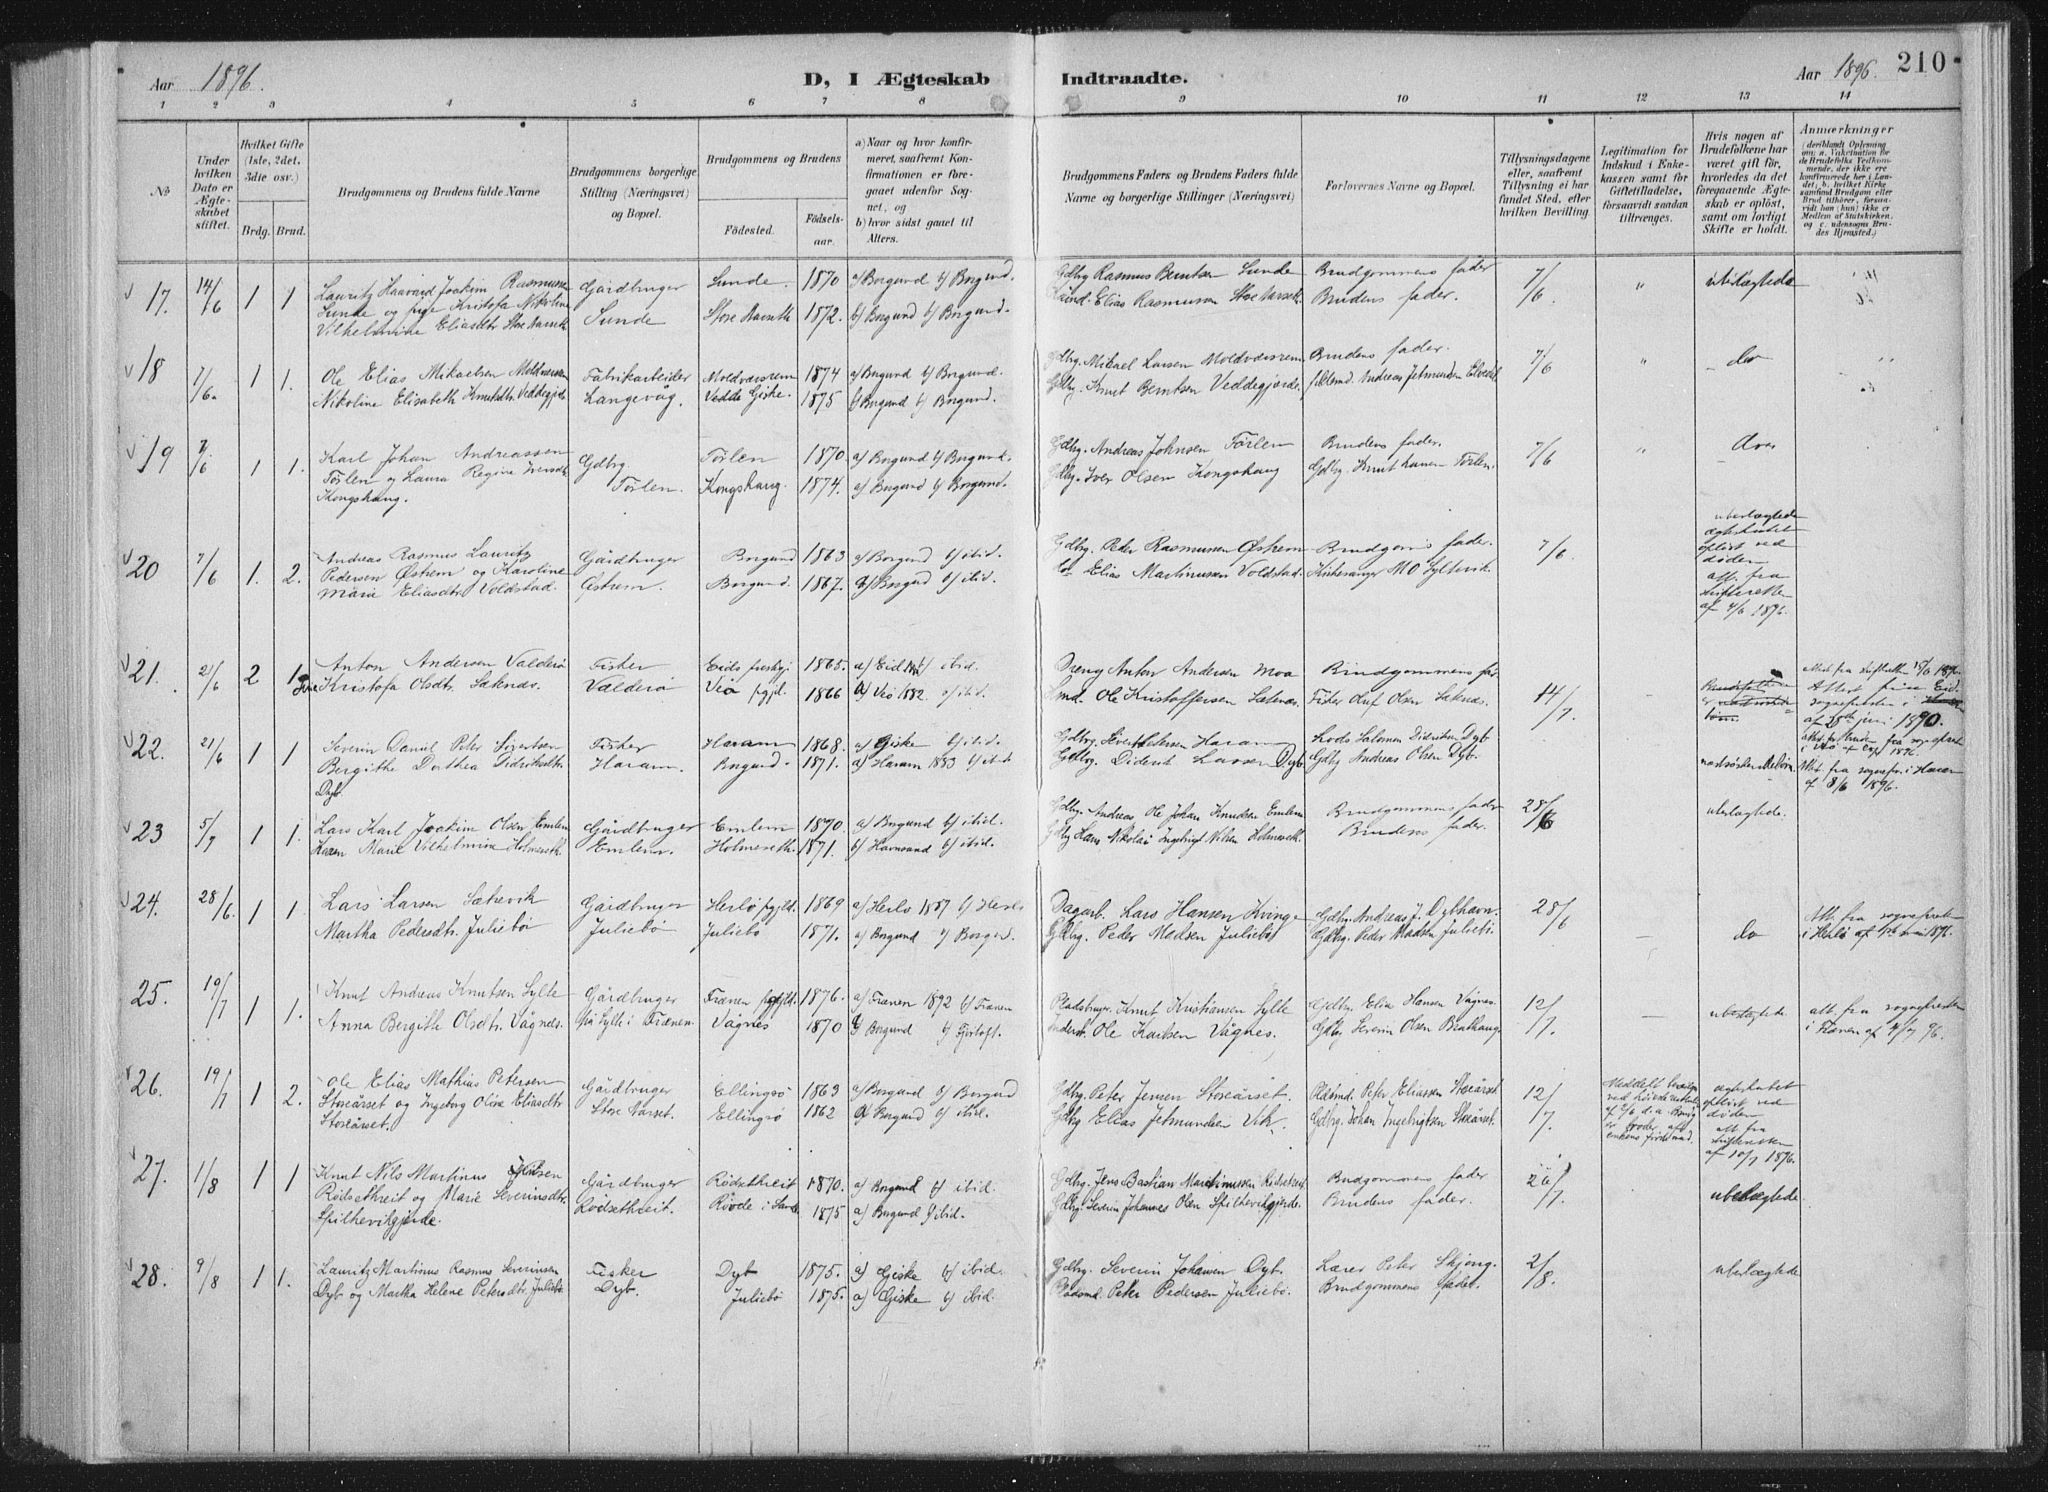 Aar 1896. D, I Ægteskab Indtraadte. Aar 1896. 210
1 2 3 4 5 6 7 8 9 10 11 12 13 14
No
Under hvilken Dato er Ægteskabet stiftet.
Hvilket Gifte (1ste, 2det, 3die osv.)
Brdg. Brud.
Brudgommens og Brudens fulde Navne
Brudgommens borgerlige Stilling (Næringsvei) og Bopæl.
Brudgommens og Brudens
Fødested. Fødselsaar.
a) Naar og hvor konfirmeret, saafremt Konfirmationen er foregaaet udenfor Sognet, og
b) hvor sidst gaaet til Alters.
Brudgommens Faders og Brudens Faders fulde Navne og borgerlige Stillinger (Næringsvei)
Forlovernes Navne og Bopæl.
Tillysningsdagene eller, saafremt Tillysning ei har fundet Sted, efter hvilken Bevilling.
Legitimation for Indskud i Enkekassen samt for Giftetilladelse, forsaavidt saadan tiltrænges.
Hvis nogen af Brudefolkene har været gift før, hvorledes da det foregaaende Ægteskab er opløst, samt om lovligt Skifte er holdt.
Anmærkninger
17. 14/6 1 1 Lauritz Haavard Joakim Rasmussen Gårdbruger Sunde. 1870 a) Borgund b) Borgund. Gdbrg Rasmus Berntsen Sunde Brudgommens fader 7/6 " ubeslægtede
Sunde og pige Kristofa Nikoline Sunde Store Aarseth 1872. b) Borgund b) Borgund. Elias Rasmussen Store Aarseth Brudens fader.
Vilhelmine Eliasdtr Store Aarseth
18 7/6. 1 1. Ole Elias Mikaelsen Moldværsrem Fabrikarbeider Moldværsrem 1874 a) Borgund b) Borgund. Gdbrg. Mikael Larsen Moldværsrem Brudens fader. 7/6 " do
Nikoline Elisabeth Knutsdtr. Veddegjerde Langevåg. Vedde Giske. 1875 b) Borgund b) Borgund. Gdbrg. Knut Berntsen Veddegjerde Andreas Jetmundsen
19 7/6 1 1. Karl Johan Andreassen Gdbrg. Tørlen 1870 a) Borgund b) Borgund. Gdbrg. Andreas Johnsen Tørlen Brudens fader. 7/6 " do
Tørlen og Laura Regine Iversdtr Tørlen. Kongshaug. 1874. a) Borgund b) Borgund. Gdbrg. Iver Olsen Kongshaug Gdbrg. Knut Larsen Tørlen.
Kongshaug.
20 7/6 1. 2. Andreas Rasmus Lauritz Gårdbruger Borgund 1863 a) Borgund b) ibid. Gdbrg. Peder Rasmussen Østrem Brudgoms fader. 7/6. ubeslægtede ægteskabet opløst ved døden att. fra skifteretten af 4/6 1896.
Pedersen Østrem og Karoline Østrem. Borgund. 1867. a) Borgund b) ibid. do Elias Martinussen Voldstad. Kirkesanger M O Sylkvik.
Marie Eliasdtr Voldstad.
21. 21/6 2 1 Anton Andersen Valderø Fisker Eids prestgj 1865. a) Eid b) ibid. Anton Andersen Moa Brudgommens far 14/7. -
Pine Kristofa Olsdtr. Sæknæs. Valderø Veø pgjd. 1866 a) Veø 1882 b) ibid. Ole Kristoffersen Sæknæs. Fisker Oluf Olsen Sæknæs.
Attest fra Eid sognepresten i af 28de juni 1890.
22. 21/6 1 1 Severin Daniel Peter Sivertsen Fisker Haram 1868. a) Giske b) ibid. Gdbrg. Sivert Petersen Haram Lods Salomon Didriksen Dyb
Bergithe Dorthea Didriksdtr. Haram. Borgund. 1871. a) Haram 1883 b) ibid Gdbrg. Diderik Larsen Dyb. Gdbrg Andreas Olsen Dyb. Att. fra sognepr. i Haram af 8/6 1896.
Dyb.
23 5/7 1 1. Lars Karl Joakim Olsen Emlem Gårdbruger Emlem 1870 a) Borgund b) ibid. Gdbrg. Andreas Ole Johan Knudsen Emlem Brudgommens fader 28/6 ubeslægtede.
Karen Marie Vilhelmine Holmeseth. Emlem. Holmeseth. 1871. b) Havnsund b) ibid. Gdbrg Hans Nikolai Ingebrigt Nilsen Holmeseth Brudens fader.
24. 28/6. 1 1. Lars Larsen Sætrevik Gårdbruger Herlø pgjld. 1869 a) Herlø 1887 b) Herlø Dagarb. Lars Hansen Kvinge Gdbrg. Andreas J. Dybhavn. 28/6 - do Att. fra sognepresten
Martha Pedersdtr. Juliebø Juliebø Juliebø 1871. a) Borgund b) Borgund. Gdbrg. Peder Madsen Juliebø Gdbrg. Peder Madsen Juliebø. i Herlø af 1896.
25. 19/7 1 1. Knut Andreas Knutsen Sylte Gårdbruger Frænen pgjld. 1876. a) Frænen 1892 b) Frænen Pladsbruger Knut Kristiansen Sylte Gdbrg. Elias Hansen Vågnes. 12/7. - ubeslægtede att. fra sognepresten
Anna Bergithe Olsdtr. Vågnes. på Sylte i Frænen. Vågnes 1870 a) Borgund b) Fjørtoft. Inderst. Ole Karlsen Vågnes. Gdbrg Severin Olsen Brathaug. i Frænen af 4/7 96.
26. 19/7 1 2. Ole Elias Mathias Petersen Gårdbruger Ellingsø 1863 a) Borgund b) Borgund Gdbrg. Peter Jensen Storeårset. Peter Eliassen Storeårset. 12/7. ægteskabet opløst ved døden att. fra skifteretten af 10/7 1896.
Storeårset og Ingeborg Oline Eliasdtr. Store Aarset. Ellingsø 1862 a) Borgund b) ibid. Gdbrg Elias Jetmundsen Vik. Gdbrg. Johan Ingebrigtsen Storeårset.
Storeårset.
27. 1/8 1 1 Knut Nils Martinus Jensen Gårdbruger Rødsethreit 1870. a) Borgund b) ibid. Gdbrg. Jens Bastian Martinussen Rødsethreit Brudgommens fader 26/7. ubeslægtede
Rødsethreit og Marie Severinsdtr. Rødsethreit. Røvde i Sande 1875 a) Borgund b) ibid. Gdbrg. Severin Johannes Olsen Spilhevikgjerde. Brudens fader.
Spilhevikgjerde.
28. 9/8 1 1. Lauritz Martinus Rasmus Severinsen Fisker Dyb 1875. a) Giske b) ibid. Gdbrg. Severin Johansen Dyb. Lærer Peter Skjong. 2/8. ubeslægtede
Dyb og Martha Helene Petersdtr. Juliebø. Dyb. Juliebø 1875. a) Giske b) ibid. Pladsmd. Peter Pedersen Juliebø. Brudgommens fader.